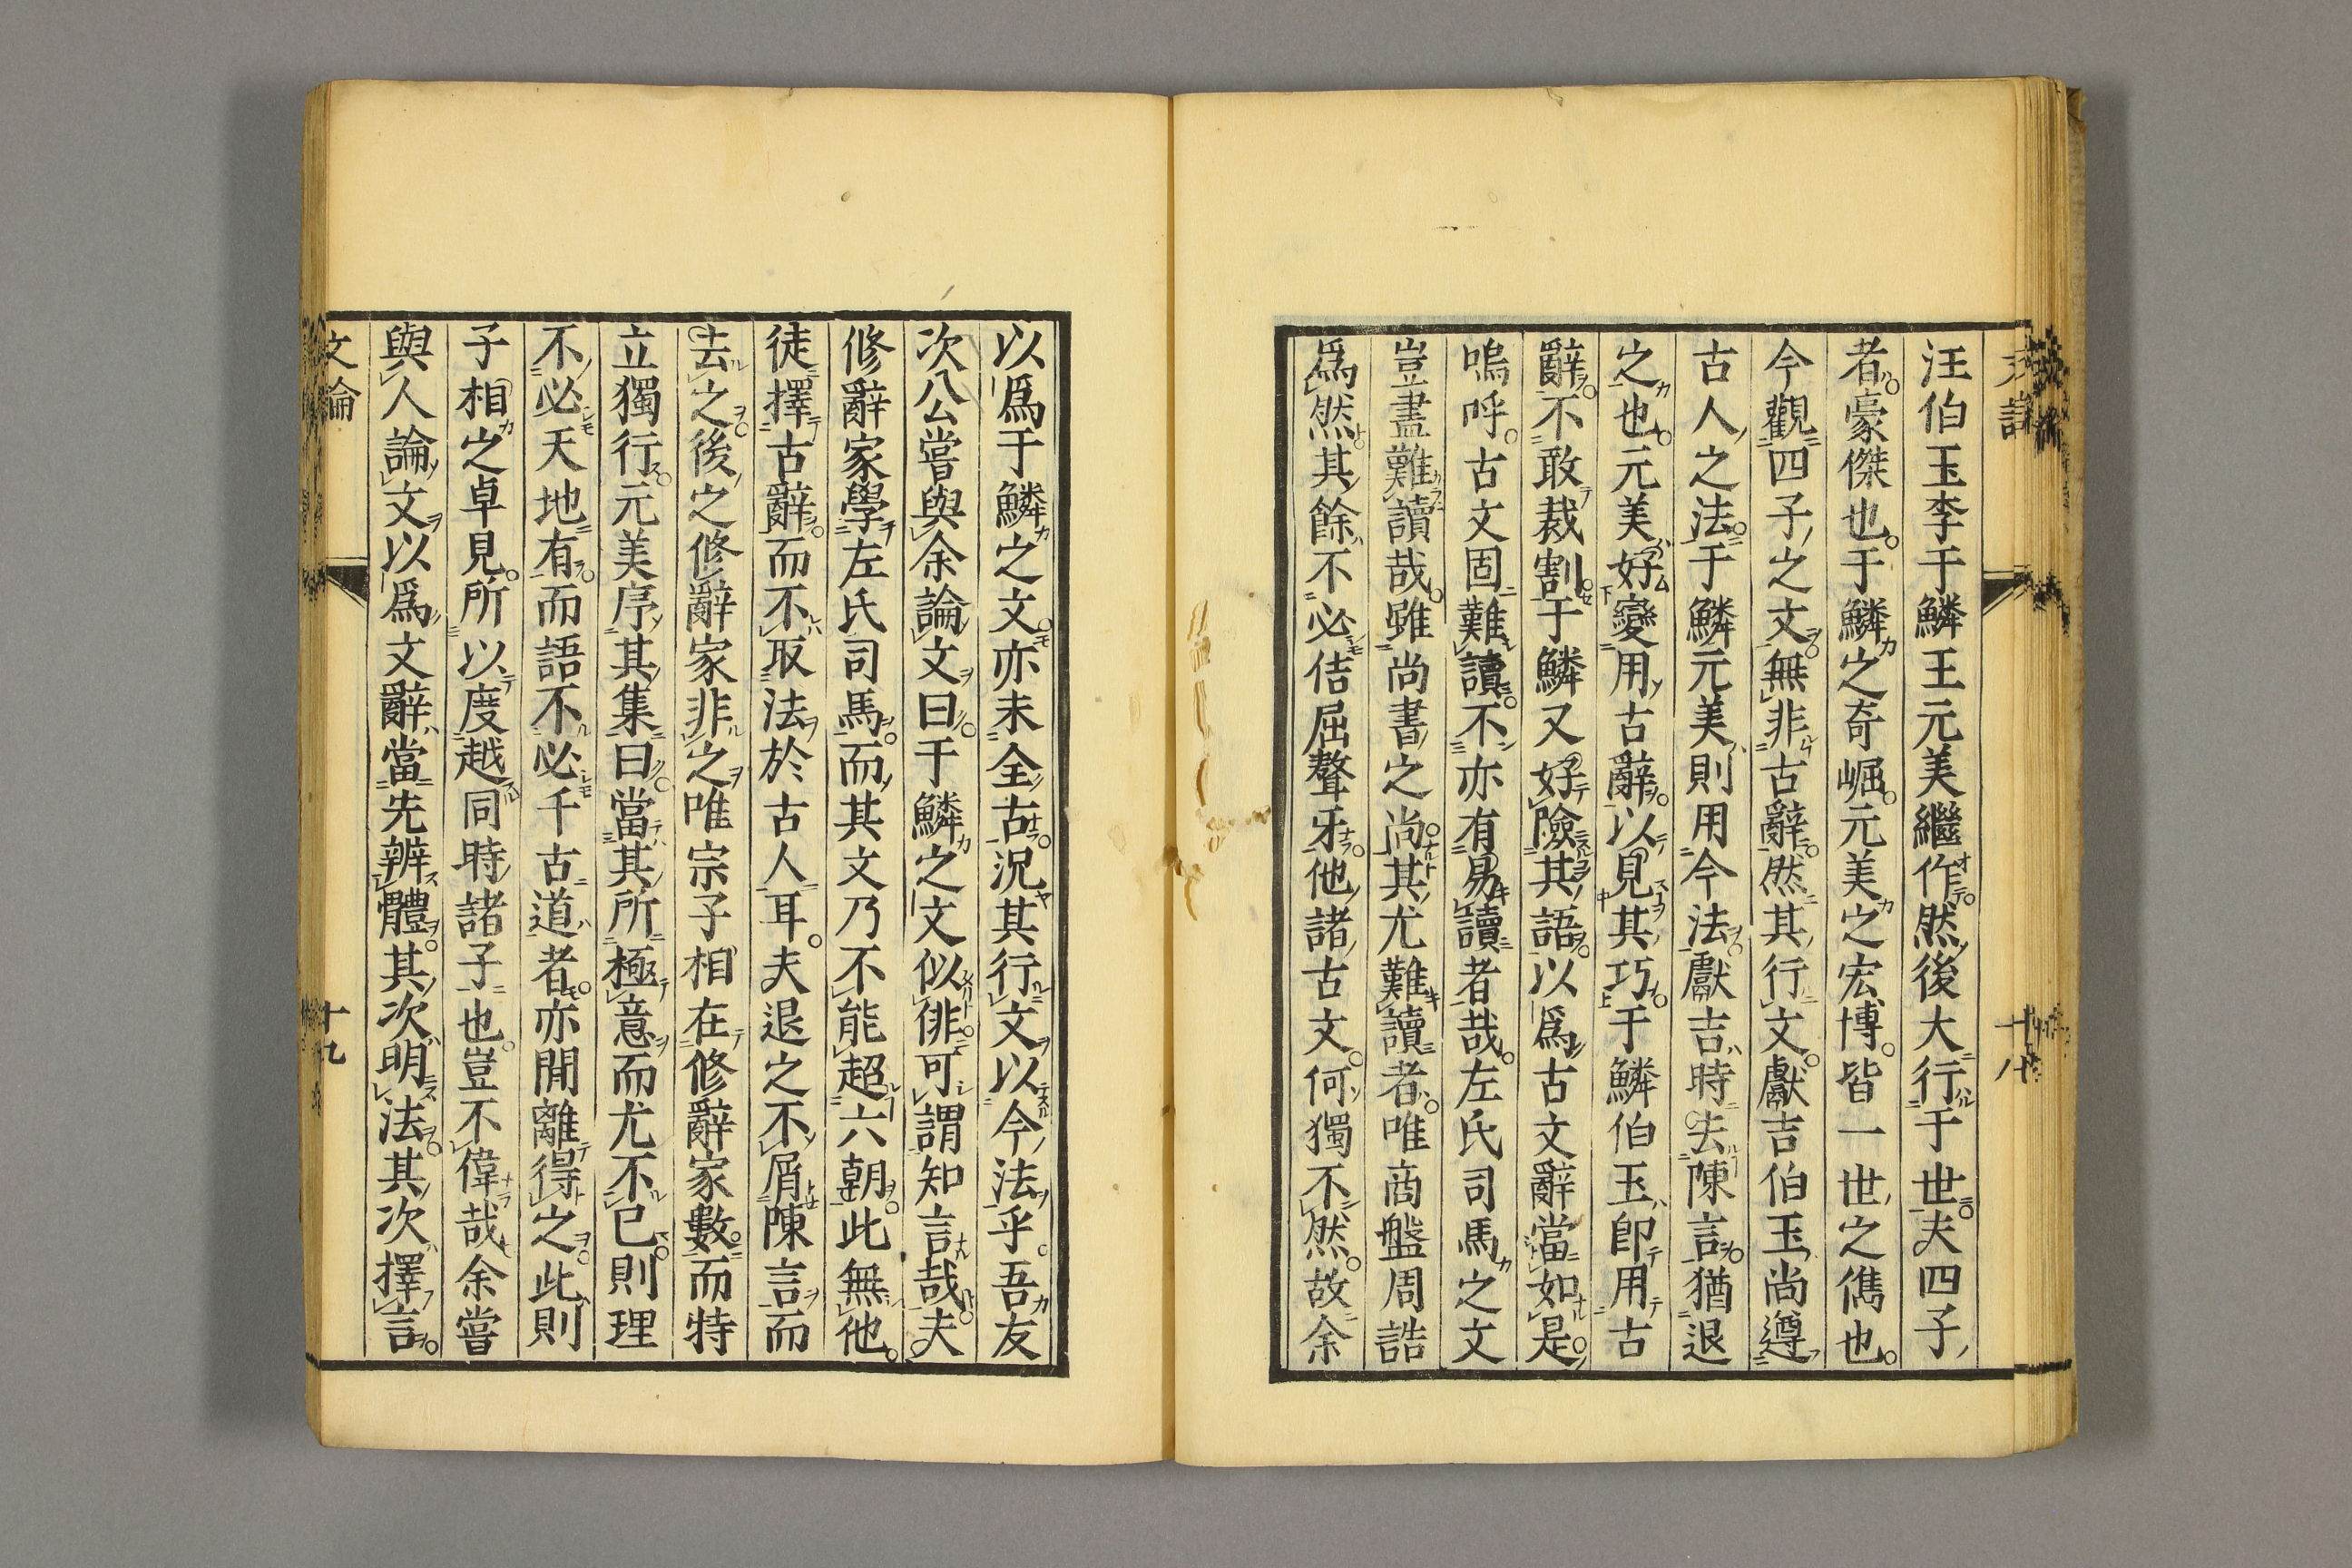 汪伯玉李于鱗王元美繼作然後大行于世夫四子
者豪傑也于鱗之奇崛元美之宏博皆一世之儁也
今觀四子之文無非古辭然其行文獻吉伯玉尚遵
古人之法于鱗元美則用今法獻吉時去陳言猶退
之也元美好變用古辭以見其巧于鱗伯玉卽用古
辭不敢裁割于鱗又好險其語以爲古文辭當如是
嗚呼古文固難讀不亦有易讀者哉左氏司馬之文
豈盡難讀哉雖尚書之尚其尤難讀者唯商盤周誥
爲然其餘不必佶屈聱牙他諸古文何獨不然故余
十八
以爲于鱗之文亦未全古況其行文以今法乎吾友
次公嘗與余論文曰于鱗之文似俳可謂知言哉夫
修辭家學左氏司馬而其文乃不能超六朝此無他
徒擇古辭而不取法於古人耳夫退之不屑陳言而
去之後之修辭家非之唯宗子相在修辭家數而特
立獨行元美序其集曰當其所極意而尤不已則理
不必天地有而語不必千古道者亦開離得之此則
子相之卓見所以度越同時諸子也豈不偉哉余嘗
與人論文以爲文辭當先辨體其次明法其次擇言
文論
十九